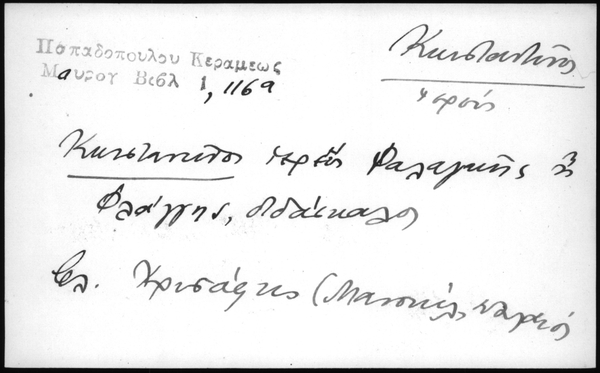 Παπαδοπουλου Κεραμεως
Μαυρογ Βιβλ 1, 116α
Κωνσταντῖνος
ἱερεύς
Κωνσταντῖνος ἱερεὺς Φαλαγκῆς ἢ
Φλάγγης, διδάσκαλος
Βλ. Χρυσάφης (Μανουήλ,